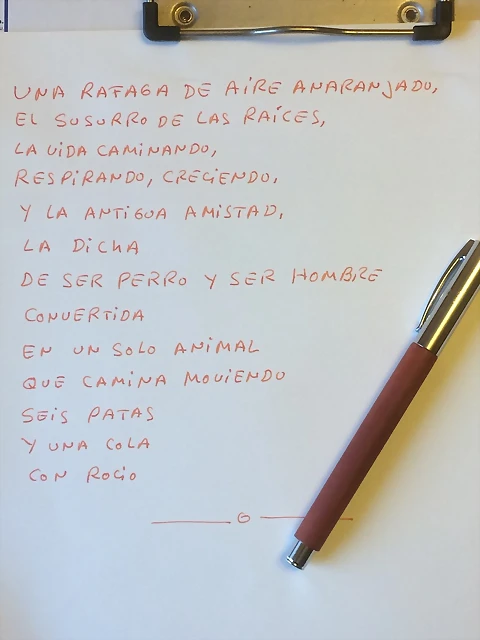 UNA RAFAGA DE AIRE ANARANJADO,
EL SUSURRO DE LAS RAÍCES,
LA VIDA CAMINANDO,
RESPIRANDO, CRECIENDO,
Y LA ANTIGUA AMISTAD,
LA DICHA
DE SER PERRO Y SER HOMBRE
CONVERTIDA
EN UN SOLO ANIMAL
QUE CAMINA MOVIENDO
SEIS PATAS
Y UNA COLA
CON ROCIO